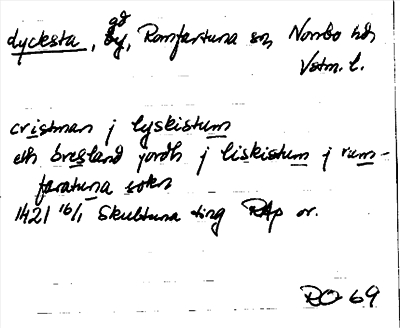 Lyckesta, gd by, Romfartuna sn, Norrbo hd,
Vstm. l.
cristman j lyskistum
eth øresland jordh j liskistum j rum-
faratuna sokn
1421 16/1 Skultuna ting RAp or.
RO 69